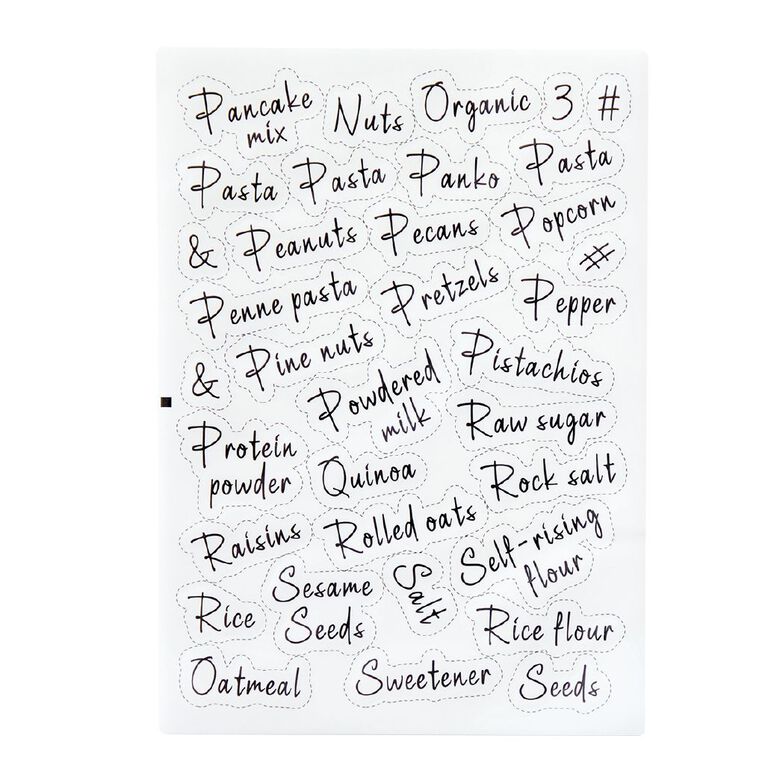 Pancake
mix
Nuts
Organic
3
#
Pasta
Pasta
Panko
Pasta
&
Peanuts
Pecans
Popcorn
#
Penne pasta
Pretzels
Pepper
&
Pine nuts
Pistachios
Powdered
milk
Raw sugar
Protein
powder
Quinoa
Rock salt
Raisins
Rolled oats
Self-rising
flour
Rice
Sesame
Seeds
Salt
Rice flour
Oatmeal
Sweetener
Seeds